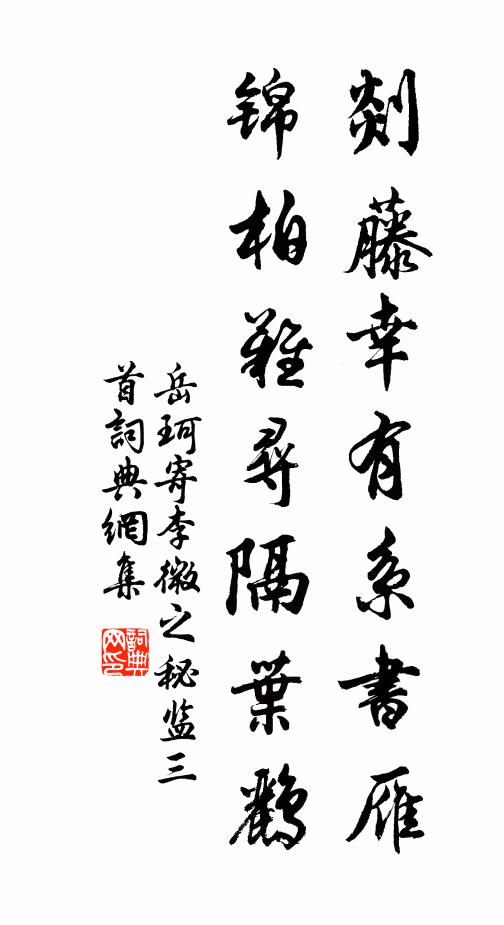 剡藤幸有系書雁
锦柏難尋隔葉鸝
岳珂寄李微之秘监三
首詞典網集
詞典网印